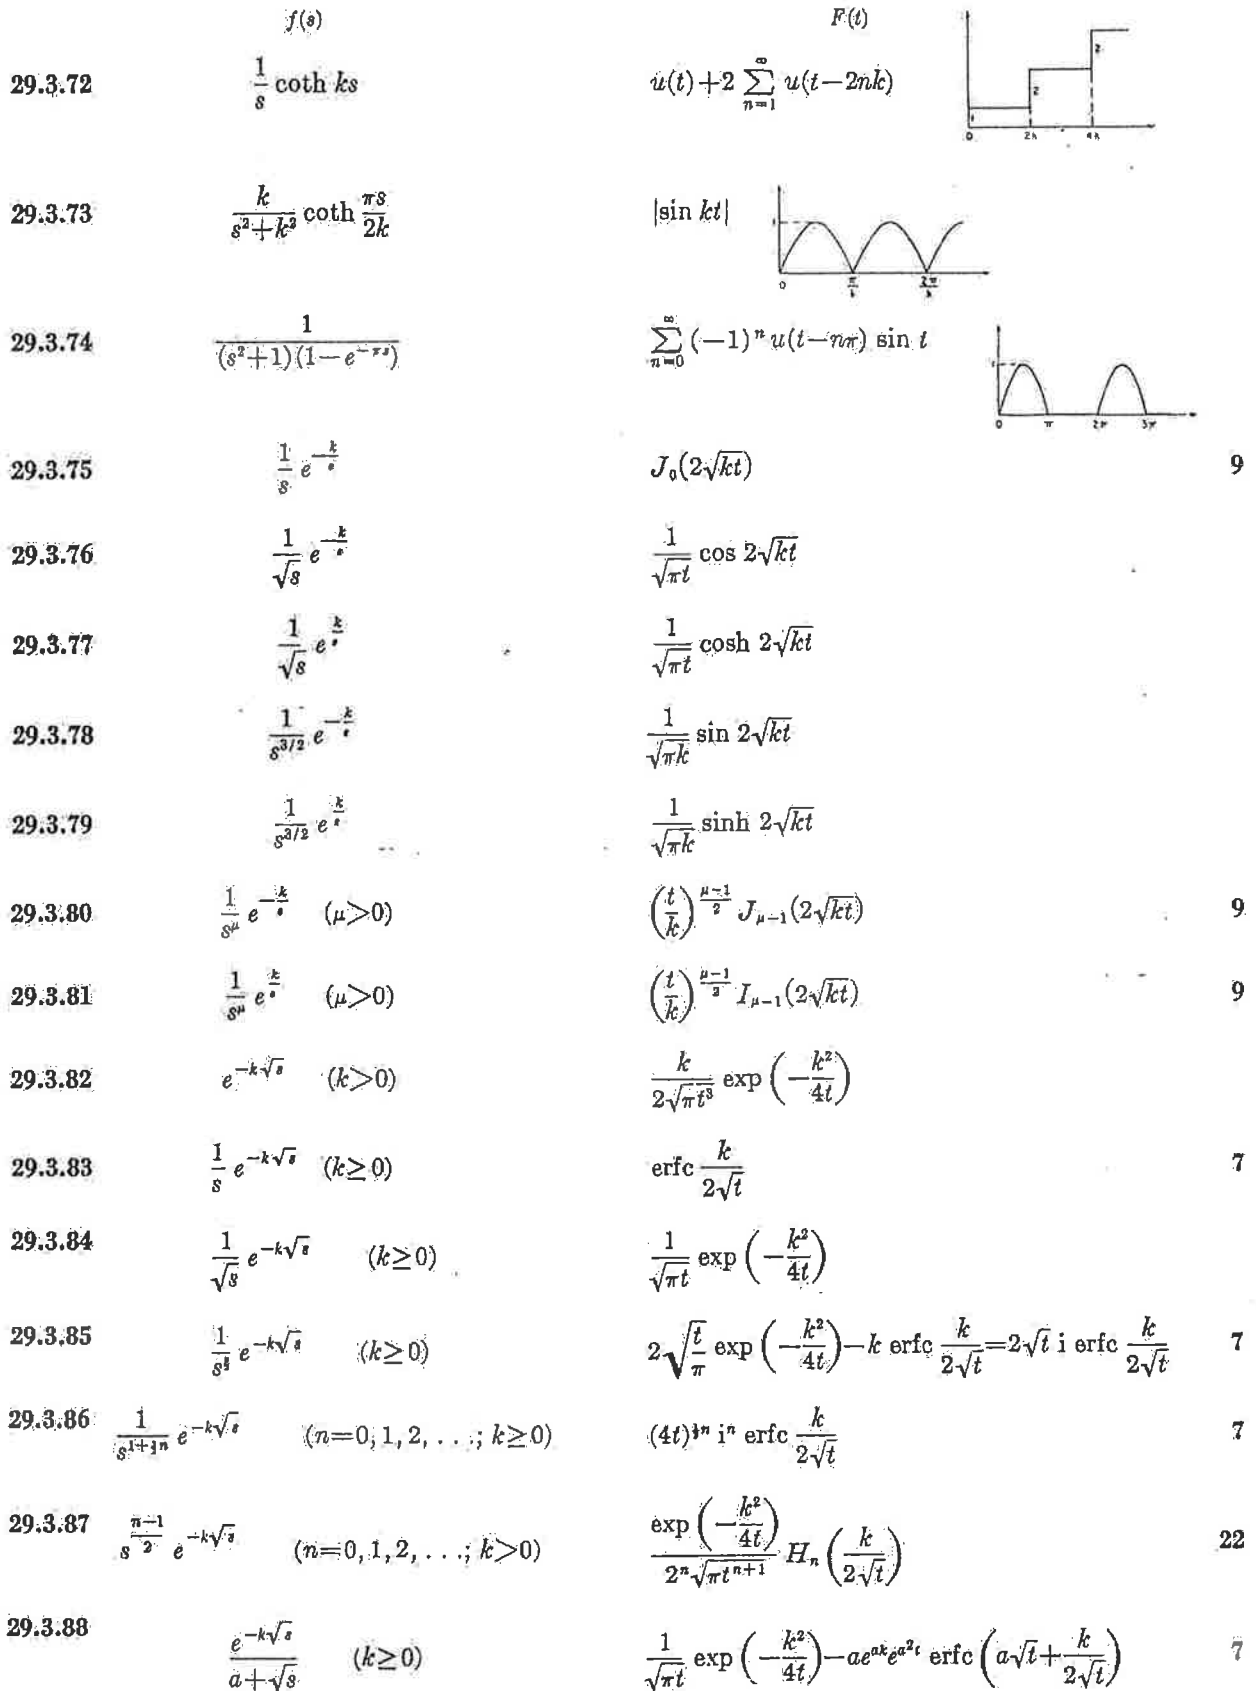 f(s) F(t)
29.3.72 1/s coth ks u(t)+2 ∑_{n=1}^{∞} u(t−2nk)
1 2 2
0 2k 4k
29.3.73 k/(s²+k²) coth πs/2k |sin kt|
1
0 π/k 2π/k
29.3.74 1/((s²+1)(1−e^{−πs})) ∑_{n=0}^{∞} (−1)ⁿ u(t−nπ) sin t
1
0 π 2π 3π
29.3.75 1/s e^{−k/s} J₀(2√(kt)) 9
29.3.76 1/√s e^{−k/s} 1/√(πt) cos 2√(kt)
29.3.77 1/√s e^{k/s} 1/√(πt) cosh 2√(kt)
29.3.78 1/s^{3/2} e^{−k/s} 1/√(πk) sin 2√(kt)
29.3.79 1/s^{3/2} e^{k/s} 1/√(πk) sinh 2√(kt)
29.3.80 1/s^μ e^{−k/s} (μ>0) (t/k)^{(μ−1)/2} J_{μ−1}(2√(kt)) 9
29.3.81 1/s^μ e^{k/s} (μ>0) (t/k)^{(μ−1)/2} I_{μ−1}(2√(kt)) 9
29.3.82 e^{−k√s} (k>0) k/(2√(πt³)) exp (−k²/4t)
29.3.83 1/s e^{−k√s} (k≥0) erfc k/(2√t) 7
29.3.84 1/√s e^{−k√s} (k≥0) 1/√(πt) exp (−k²/4t)
29.3.85 1/s^{3/2} e^{−k√s} (k≥0) 2√(t/π) exp (−k²/4t)−k erfc k/(2√t)=2√t i erfc k/(2√t) 7
29.3.86 1/s^{1+½n} e^{−k√s} (n=0, 1, 2, . . .; k≥0) (4t)^{½n} iⁿ erfc k/(2√t) 7
29.3.87 s^{(n−1)/2} e^{−k√s} (n=0, 1, 2, . . .; k>0) exp (−k²/4t)/(2ⁿ√(πt^{n+1})) Hₙ (k/(2√t)) 22
29.3.88 e^{−k√s}/(a+√s) (k≥0) 1/√(πt) exp (−k²/4t)−ae^{ak}e^{a²t} erfc (a√t+k/(2√t)) 7